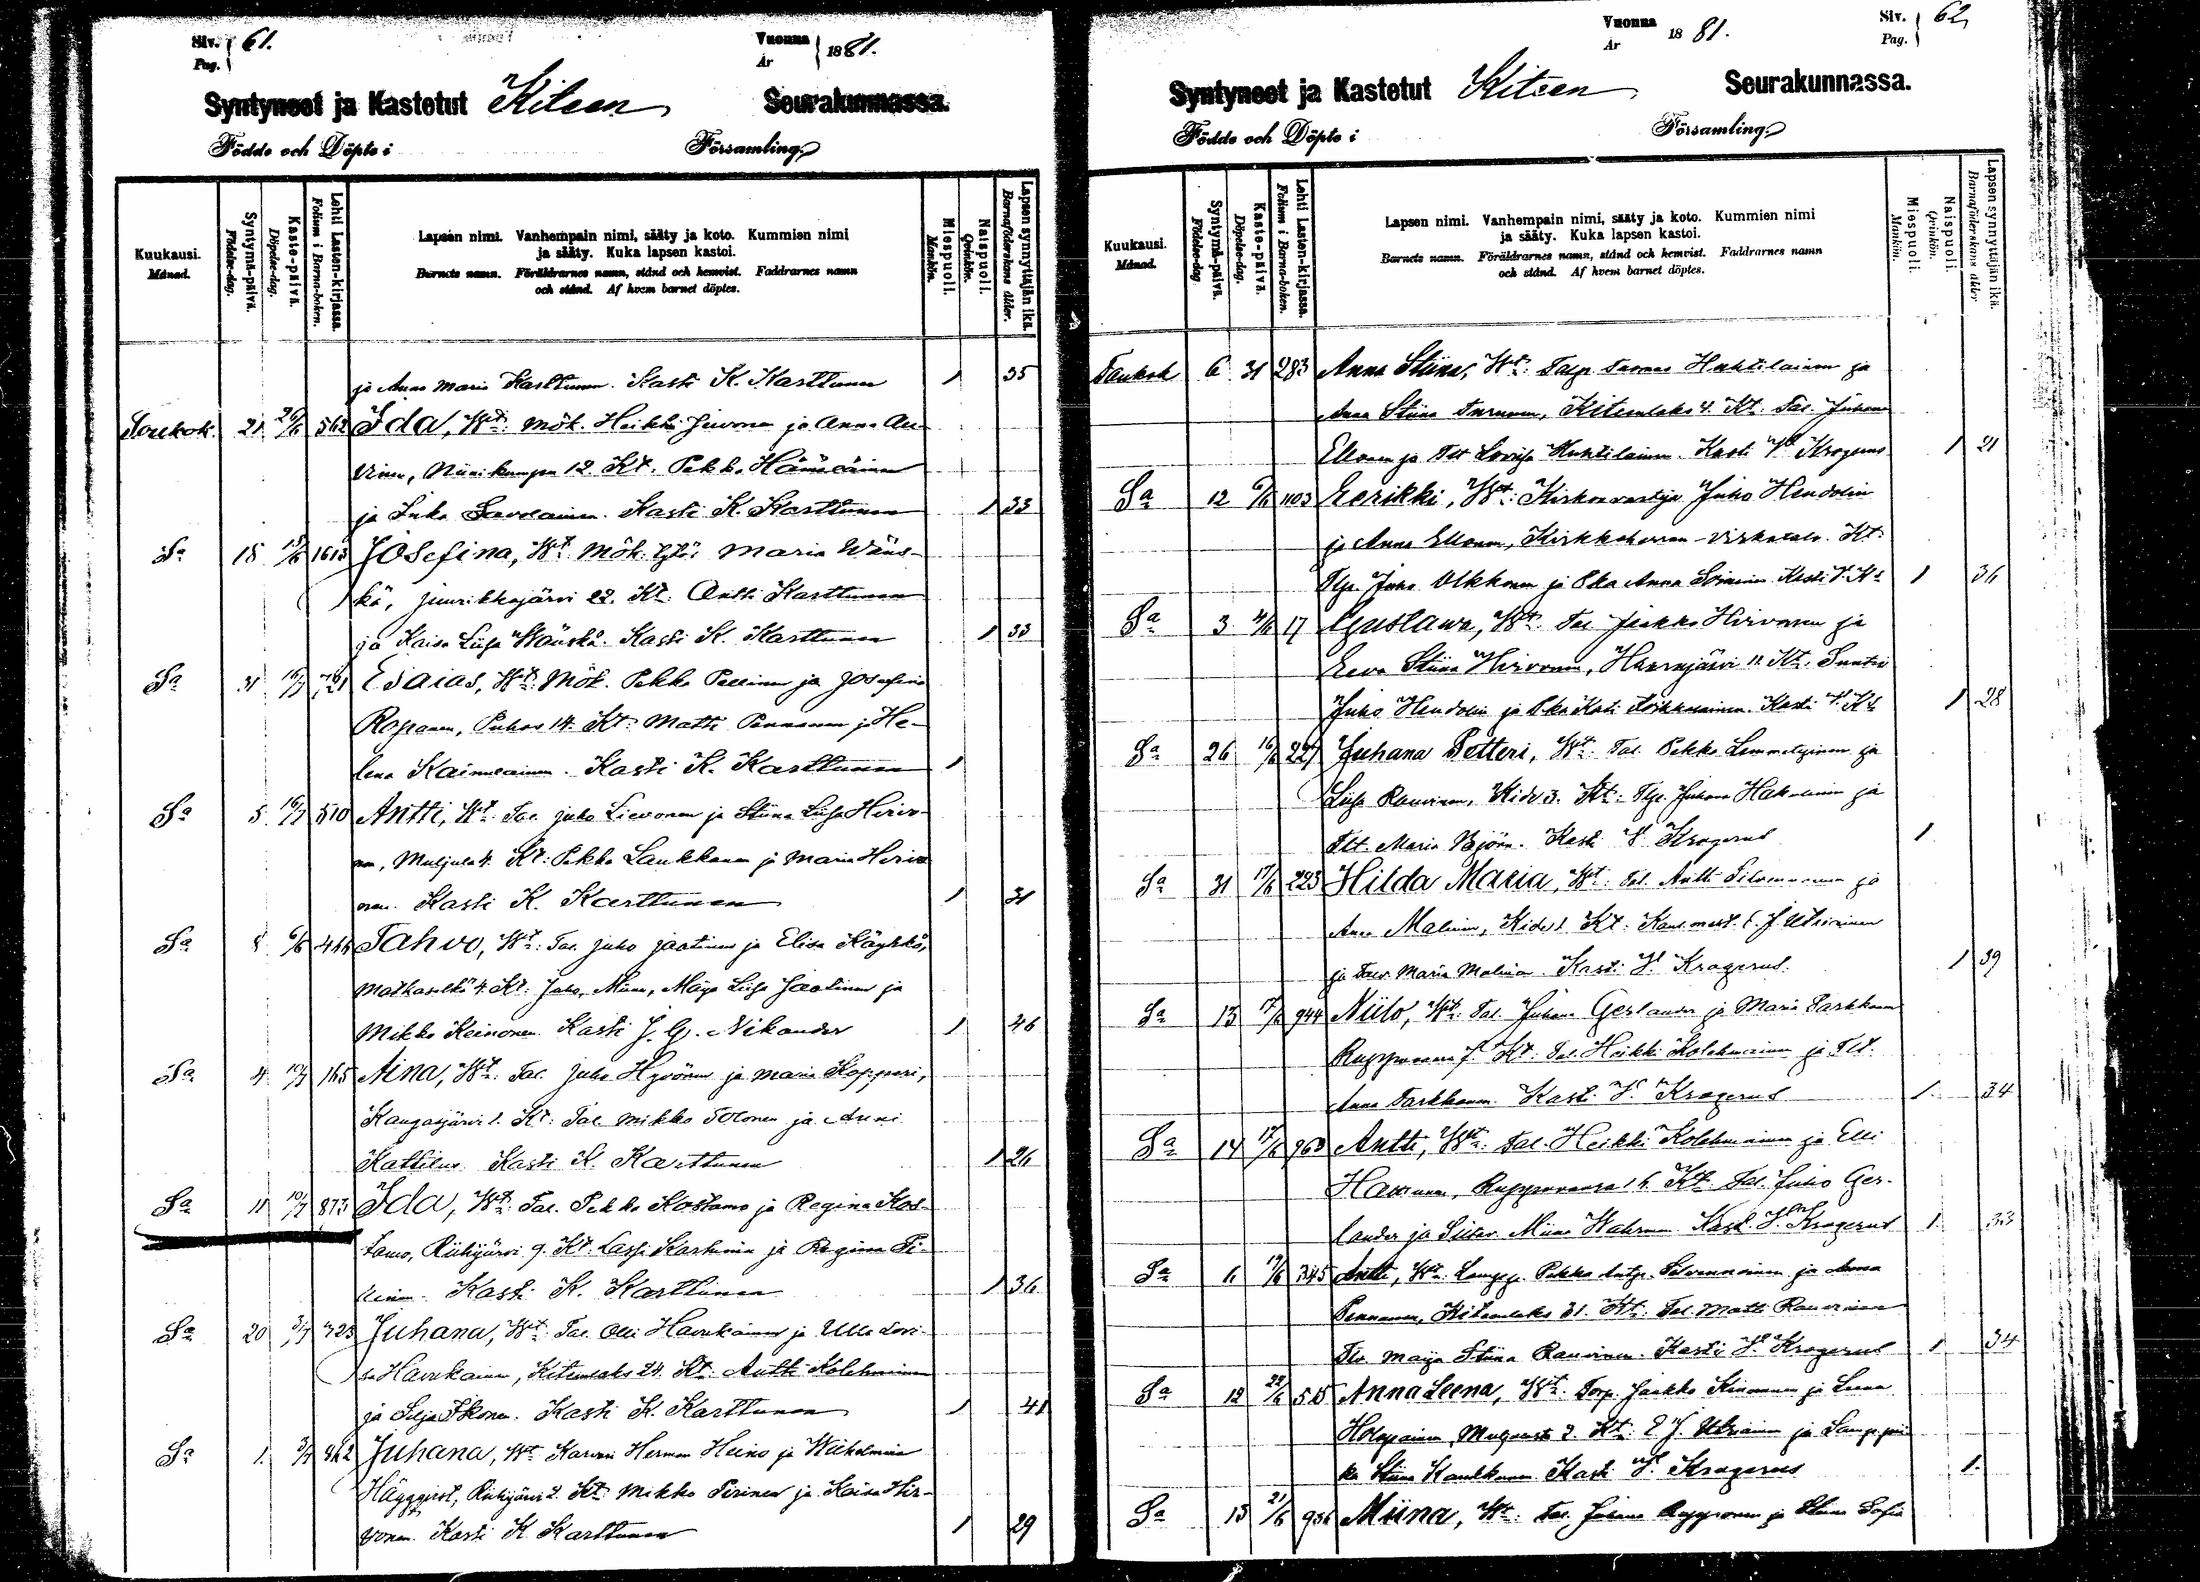 Siv. 61.
Pag.
Vuonna 1881.
År
Syntyneet ja Kastetut Kiteen Seurakunnassa.
Födde och Döpte i Församling.
Kuukausi.
Månad.
Syntymä-päivä.
Födelse-dag.
Kaste-päivä.
Döpelse-dag.
Lehti Lasten-kirjassa.
Folium i Barna-boken.
Lapsen nimi. Vanhempain nimi, sääty ja koto. Kummien nimi
ja sääty. Kuka lapsen kastoi.
Barnets namn. Föräldrarnes namn, stånd och hemvist. Faddrarnes namn
och stånd. Af hvem barnet döptes.
Miespuoli.
Mankön.
Naispuoli.
Qvinkön.
Lapsen synnyttäjän ikä.
Barnaföderskans ålder.
ja Anna Maria Karttunen. Kasti K. Karttunen 1 35
Toukok. 21 26/6 562 Ida, Wt: Mök. Heikki Juvonen ja Anna
12. Kt. Pekka Hämäläinen
ja Inka Savolainen. Kasti K. Karttunen 1 33
Sa 18 1613 Josefina, Wt: Mök. Maria Wäns-
kä, Juurikkajärvi 22. Kt. Antti Karttunen
ja Kaisa Liisa Wänskä. Kasti K. Karttunen 1 33
Sa 31 721 Esaias, Wt: Mök. Pekka Pellinen ja Josefina
Ropanen, Puhos 14. Kt: Matti Pennanen ja He-
lena Kainulainen. Kasti K. Karttunen 1
Sa 5 510 Antti, Wt: Tal. Juho Lievonen ja Stiina Liisa Hirvo-
nen, Muljula 4. Kt: Pekka Laukkanen ja Maria Hirvo-
nen. Kasti K. Karttunen 1 31
Sa 8 Tahvo, Wt: Tal. Juho Jaatinen ja Elisa Käyhkö,
Matkaselkä 4. Kt: Juho, Miina, Maija Liisa Jaatinen ja
Mikko Keinonen. Kasti J. G. Nikander 1 46
Sa 4 165 Aina, Wt: Tal. Juho Hyvönen ja Maria Kopperi,
Kangasjärvi 1. Kt: Tal. Mikko Tolonen ja Anni
Kattilus. Kasti K. Karttunen 1 26
Sa 11 10/7 873 Ida, Wt: Tal. Pekka Kostamo ja Regina Kos-
tamo, Riihijärvi 9. Kt. Lassi Karhinen ja Regina
Kasti K. Karttunen 1 36
Sa 20 3/7 323 Juhana, Wt: Tal. Olli Havukainen ja Ulla Lovi-
sa Havukainen, Kiteenlaks 24. Kt. Antti Kolehmainen
ja Silja Ikonen. Kasti K. Karttunen 1 41
Sa 1. 3/7 862 Juhana, Wt: Karvari Herman Heino ja Wilhelmina
Häggqvist, Riihijärvi 2. Kt: Mikko Pirinen ja Kaisa Hir-
vonen. Kasti K. Karttunen 1 29
Siv. 62,
Pag.
Vuonna 1881.
År
Syntyneet ja Kastetut Kiteen Seurakunnassa.
Födde och Döpte i Församling.
Kuukausi.
Månad.
Syntymä-päivä.
Födelse-dag
Kaste-päivä.
Döpelse-dag.
Lehti Lasten-kirjassa.
Folium i Barna-boken.
Lapsen nimi. Vanhempain nimi, sääty ja koto. Kummien nimi
ja sääty. Kuka lapsen kastoi.
Barnets namn. Föräldrarnes namn, stånd och hemvist. Faddrarnes namn
och stånd. Af hvem barnet döptes.
Miespuoli.
Mankön.
Naispuoli.
Qvinkön.
Lapsen synnyttäjän ikä.
Barnaföderskans ålder
Toukok 6 31 283 Anna Stiina, Wt: Huhtilainen ja
Anna Stiina Turunen, Kiteenlaks 4. Kt. Tal. Juhana
Ellonen ja Tlt Lovisa Huhtilainen. Kasti W. Krogerus 1 21
Sa 12 6/6 1103 Eerikki, Wt: Kirkonvartija Juho Hendolin
ja Anna Ellonen, Kirkkoherran-virkatalo. Kt:
Tlp. Juho Olkkonen ja Pka Anna Soininen Kasti W. Ks 1 36
Sa 3 17 Gustawa, Wt: Tal. Jaakko Hirvonen ja
Eeva Stiina Hirvonen, Haarajärvi 11. Kt. Suntio
Juho Hendolin ja Pka Kati Kasti W. Ks 1 28
Sa 26 16/6 227 Juhana Petteri, Wt: Tal. Pekka Lemmetyinen ja
Liisa Rauvinen, Kide 3. Kt: Tlp. Juhana Hakulinen ja
Tlt. Maria Björn. Kasti W. Krogerus 1
Sa 31 17/6 223 Hilda Maria, Wt: Tal. Antti Silvennoinen ja
Anna Malinen, Kide 1 Kt. E. J. Utriainen
ja Maria Malinen Kasti W. Krogerus. 1 39
Sa 13 17/6 944 Niilo, Wt: Tal. Juhana Gerlander ja Maria Tarkkonen
Ruppovaara 7. Kt. Tal. Heikki Kolehmainen ja Tlt.
Anna Tarkkonen. Kasti W. Krogerus 1. 34
Sa 14 17/6 963 Antti, Wt: Tal. Heikki Kolehmainen ja Elli
Hassinen, Ruppovaara 16. Kt. Tal. Juho Ger-
lander ja Miina Kasti W. Krogerus 1. 33
Sa 6 19/6 345 Antti, Wt: Pekka Antp. Silvennoinen ja Anna
Pennanen, Kiteenlaks 31. Kt: Tal. Matti Rauvinen
Maija Stiina Rauvinen. Kasti W. Krogerus 1 34
Sa 12 22/6 515 Anna Leena, Wt: Torp. Jaakko Kinnunen ja Leena
Holopainen, 2. Kt: E. J. Utriainen ja
Stiina Kasti W. Krogerus 1.
Sa 13 21/6 936 Miina, Wt: Tal. Juhana Rupponen ja Sofia